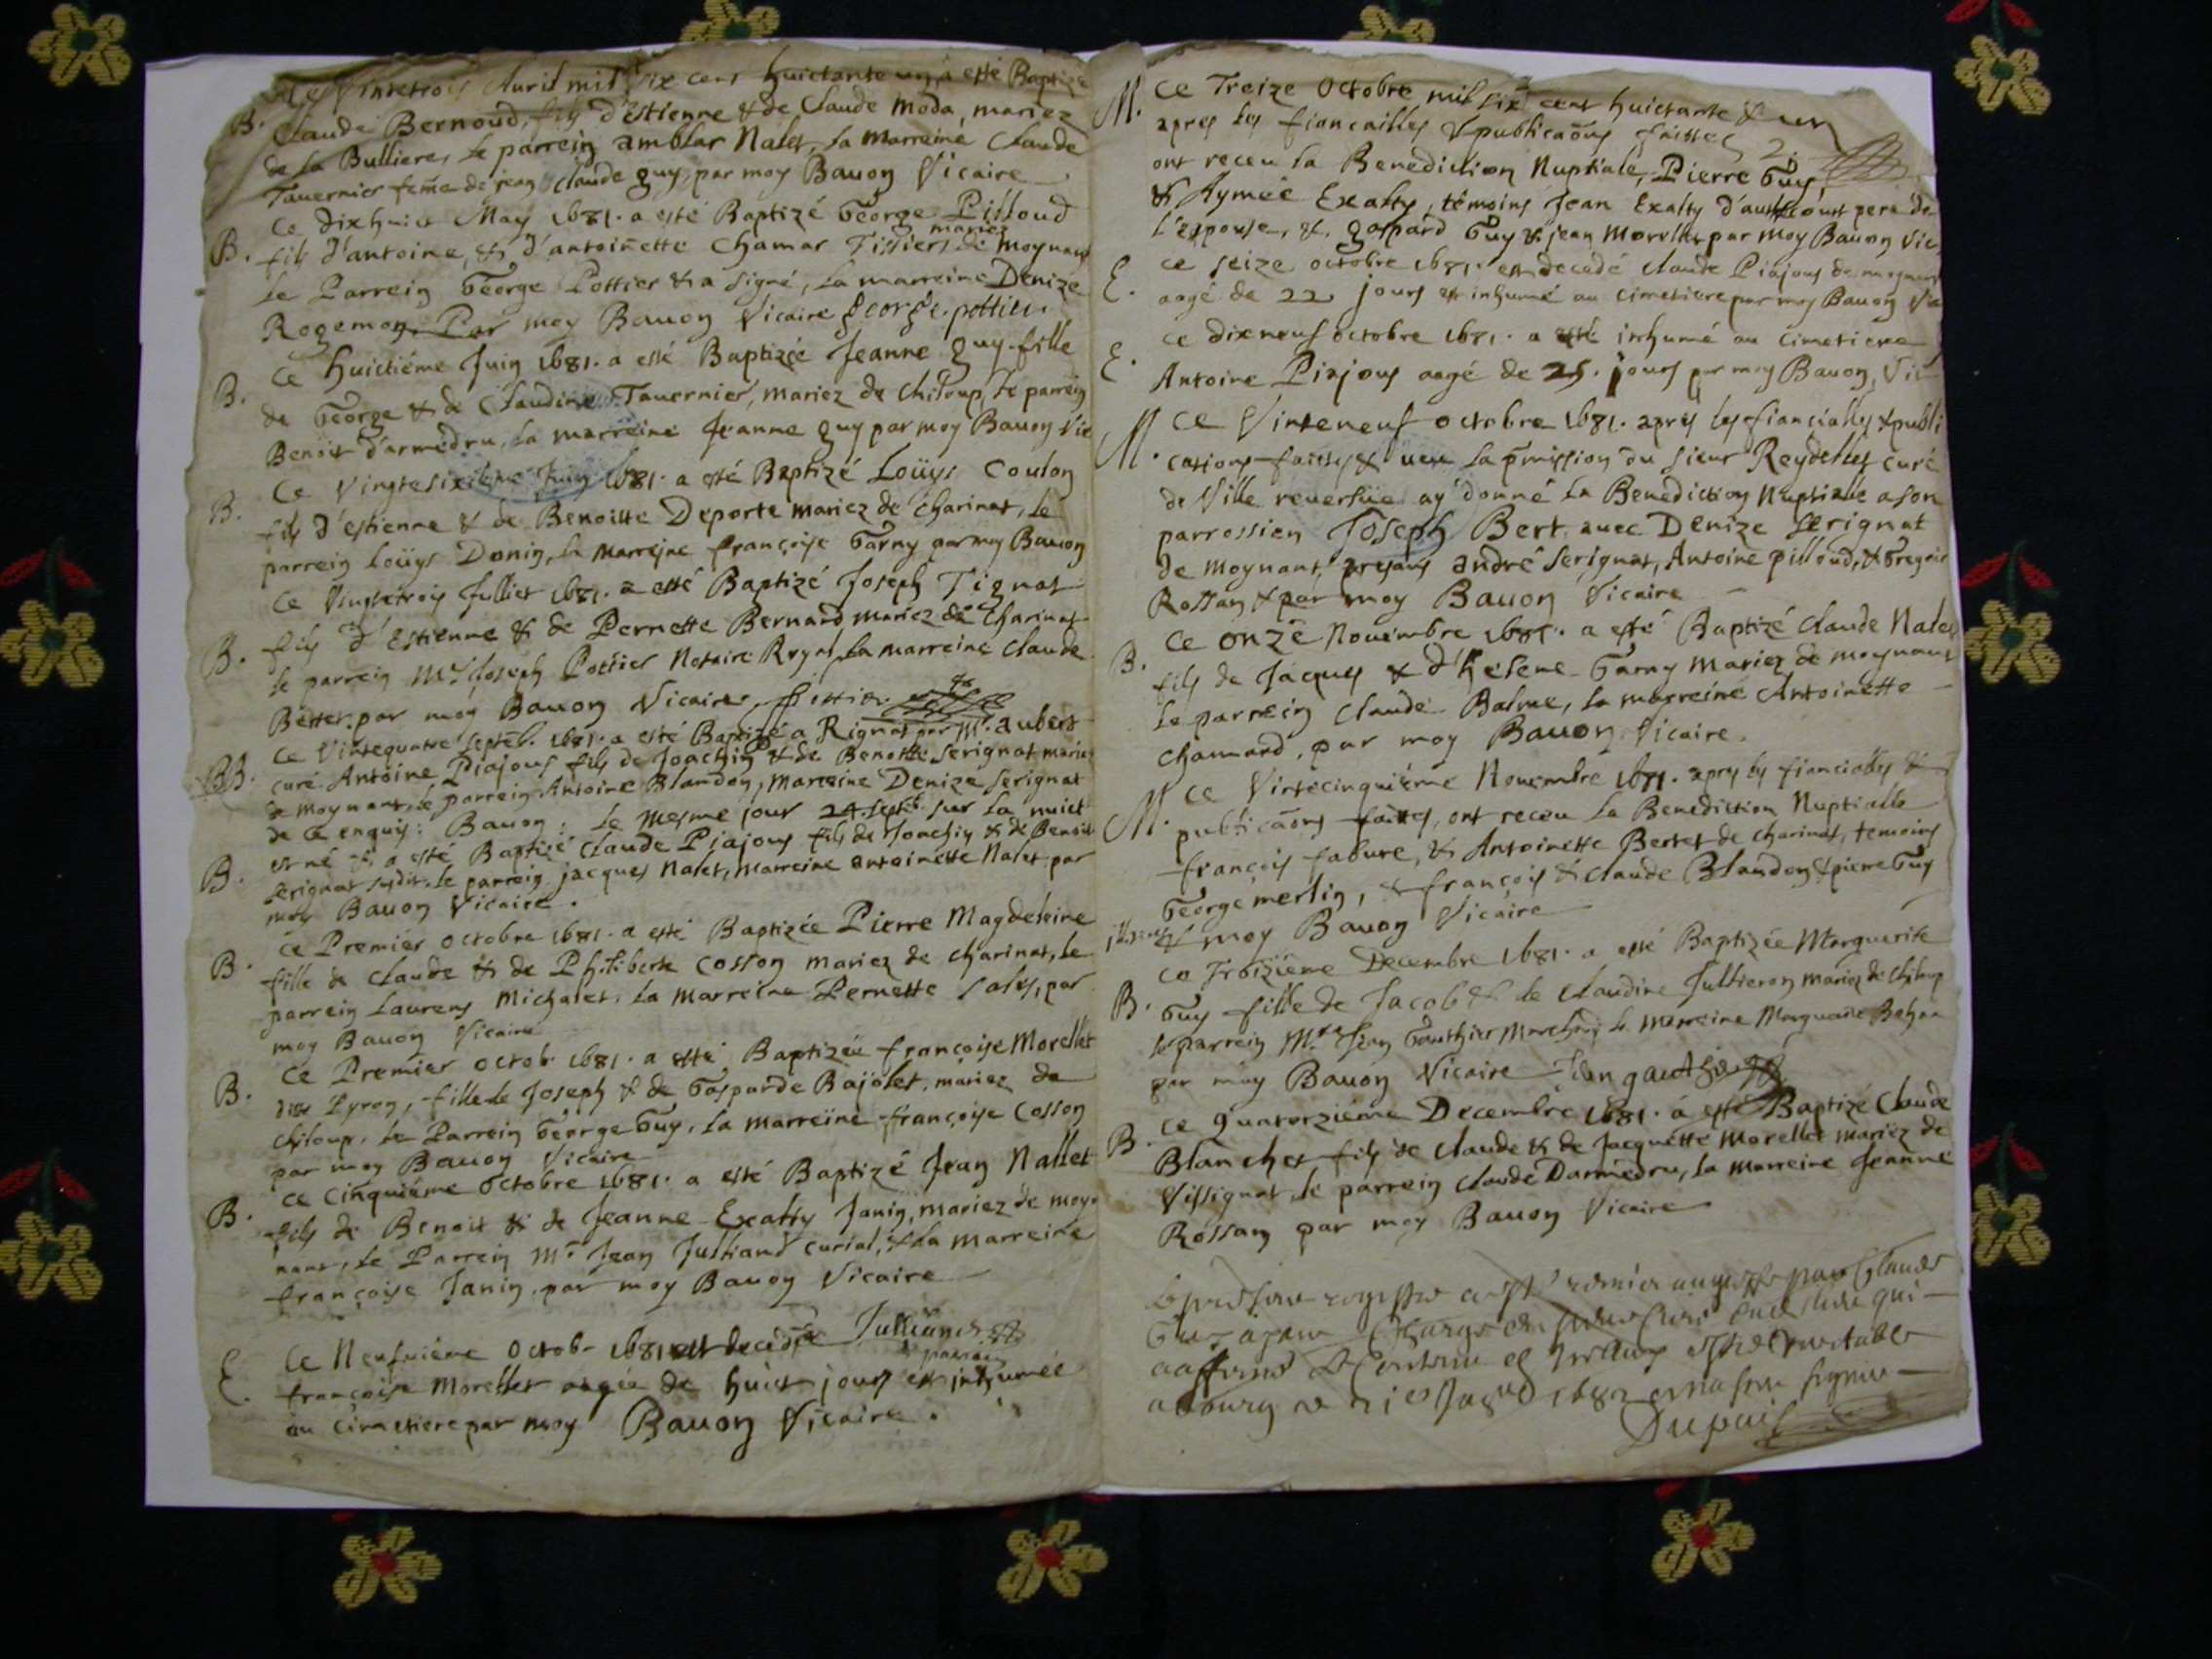 Ce Vintetrois Auril mil six cens huictante un a esté Baptizé
B. Claude Bernoud, fils d'Estienne & de Claude Moda, mariez
de la Bulliere, le parrein amblar Nalet, la marreine Claude
Tauernier feme de jean Claude guy, par moy Bauon Vicaire
Ce dixhuict May 1681. a esté Baptizé George Pilloud
mariez
B. fils d'antoine, & d'antoinette Chamar Tissiers de moynant
le Parrein George Pottier & a signé, la marreine Denize
Rogemon, Par moy Bauon Vicaire George pottier.
Ce huictiéme Juin 1681. a esté Baptizée Jeanne guy fille
B. de George & de Claudine Tauernier, mariez de chiloup, le parrein
Benoit d'armedru, la marreine Jeanne guy par moy Bauon Vic
Ce Vingtesixieme Juin 1681. a esté Baptizé Loüys Coulon
B. fils d'estienne & de Benoitte Deporte mariez de Charinat, le
parrein Loüys Donin, la marreine françoise Garny par moy Bauon
Ce Vingtetrois Jullies 1681. a esté Baptizé Joseph Tignat
B. fils d'Estienne & de Pernette Bernard mariez de Charinat
le parrein Mr Joseph Pottier Notaire Royal, la marreine Claude
Bertet. par moy Bauon Vicaire, Pottier
Ce Vintequatre septeb. 1681. a esté Baptizé a Rignat par Mr. aubert
BB. curé Antoine Piajous fils de Joachin & de Benoitte Serignat mariez
de moynant, le parrein Antoine Blandon, marreine Denize Serignat
de ce enquis: Bauon. Le mesme jour 24. septb. sur la nuict
B. est né & a esté Baptizé Claude Piajous fils de Joachin & de Benoit
Serignat susdit. le parrein jacques Nalet, marreine antoinette Nalet par
moy Bauon Vicaire.
Ce Premier octobre 1681. a esté Baptizée Pierre Magdeleine
B. fille de Claude & de Philiberte Cosson mariez de Charinat, le
parrein Laurens Michalet, la marreine Pernette Sales, par
moy Bauon Vicaire
Ce Premier octob. 1681. a esté Baptizée françoise Morellet
B. dite Pyron, fille de Joseph & de Gasparde Bajolet, mariez de
chiloup, le Parrein George Guy, la marreine françoise Cosson
par moy Bauon Vicaire
Ce Cinquiéme Octobre 1681. a esté Baptizé Jean Nallet
B. fils de Benoit & de Jeanne Exatty Janin, mariez de moy-
nant, le Parrein Mr Jean Julliand curial, & la marreine
françoise Janin, par moy Bauon Vicaire
Julliand
parrein
Ce Neufuiéme Octob. 1681 est decedée
E. françoise Morellet aagée de huict jours & inhumée
au cimetiere par moy Bauon Vicaire.
M. Ce Treize Octobre mil six cent huictante & un
apres les fiancailles & publicaõns faittes 2.
ont receu la Benediction Nuptiale, Pierre Guy,
& Aymée Exatty, témoins Jean Exatty d'autrecourt pere de
l'espouse, &, gaspard Guy & jean Morellet par moy Bauon Vic
E. Ce seize octobre 1681. est decedé Claude Piajous de moynant
aagé de 22 jours & inhumé au cimetiere par moy Bauon Vic
Ce dixneuf octobre 1681. a esté inhumé au cimetiere
E. Antoine Piajous aagé de 25. jours par moy Bauon, Vic
Ce Vinteneuf octobre 1681. apres les fianciallies & publi
M. cations faittes & ueu la pmission du sieur Reydellet curé
de Ville reuersüe ay donné la Benediction Nuptialle a son
parrossien Joseph Bert auec Denize Serignat
de moynant, presans andré Serignat, Antoine pilloud, & Gregoir
Rossan & par moy Bauon Vicaire
Ce onze Nouembre 1681. a esté Baptizé Claude Nalet
B. fils de Jacques & d'helene Garny mariez de moynant
le parrein Claude Balme, la marreine Antoinette
Chamard, par moy Bauon Vicaire.
Ce Vintecinquiéme Nouembre 1681. apres les fiancialles &
M. publicaõns faittes, ont receu la Benediction Nuptialle
françois fabure, & Antoinette Bertet de charinat, temoins
George merlin, & françois & Claude Blandon & pierre Guy
& moy Bauon Vicaire
Ce Troiziéme Decembre 1681. a esté Baptizée Marguerite
B. Guy fille de Jacob & de Claudine Jullieron mariez de chiloup
le parrein Mre Jean Gauthier Marchand, la marreine Marguerite
par moy Bauon Vicaire Jean gautier
Ce quatorziéme Decembre 1681. a esté Baptizé Claude
B. Blanchet fils de Claude & de Jacquette Morellet mariez de
Vissignat, le parrein Claude Darmedru, la marreine Jeanne
Rossan par moy Bauon Vicaire
Le registre a esté remis au greffe par Claude
Guy
a affirmé veritable
a bourg 1682
Dupuis